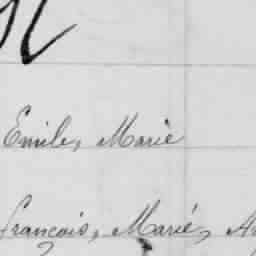 Emile, Marie
françois, Marié,